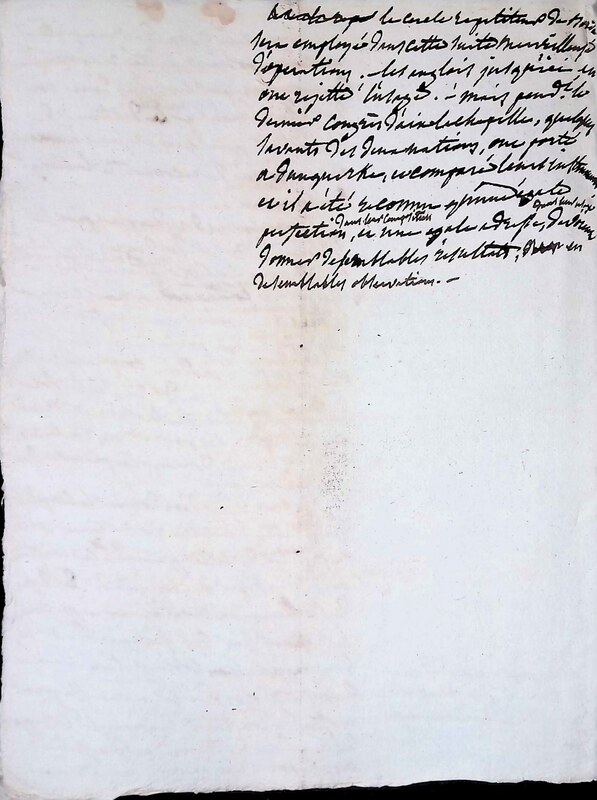 le cercle repetiteur de Borda
sera employé dans cette suite merveilleuse
d'operations. - les anglois jusqu'ici en
ont rejetté l'usage. - mais pend.t le
dernier Congrès d'aix la chapelle, quelques
savants des deux nations, ont porté
a dunquerke, et comparé leurs instrumens
et il a été reconnu qu'une égale
perfection, dans leur composition et une egale adresse, dans leur usage
donnent de semblables résultats, en
de semblables observations. -